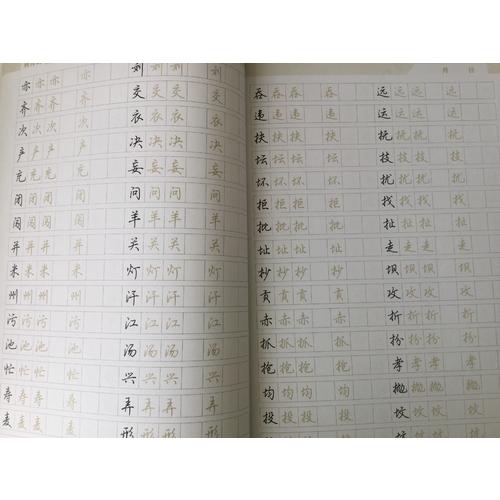 亦亦亦 亦 刘刘刘 刘
齐齐齐 齐 交交交 交
次次次 次 衣衣衣 衣
产产产 产 决决决 决
充充充 充 妄妄妄 妄
闭闭闭 闭 问问问 问
闯闯闯 闯 羊羊羊 羊
并并并 并 关关关 关
米米米 米 灯灯灯 灯
州州州 州 汗汗汗 汗
污污污 污 江江江 江
池池池 池 汤汤汤 汤
忙忙忙 忙 兴兴兴 兴
寿寿寿 寿 弄弄弄 弄
麦麦麦 麦 形形形 形
月 日
吞吞吞 吞 远远远 远
违违违 违 运运运 运
扶扶扶 扶 抚抚抚 抚
坛坛坛 坛 技技技 技
坏坏坏 坏 扰扰扰 扰
拒拒拒 拒 找找找 找
批批批 批 扯扯扯 扯
址址址 址 走走走 走
抄抄抄 抄 坝坝坝 坝
贡贡贡 贡 攻攻攻 攻
赤赤赤 赤 折折折 折
抓抓抓 抓 扮扮扮 扮
抢抢抢 抢 孝孝孝 孝
均均均 均 抛抛抛 抛
投投投 投 坟坟坟 坟